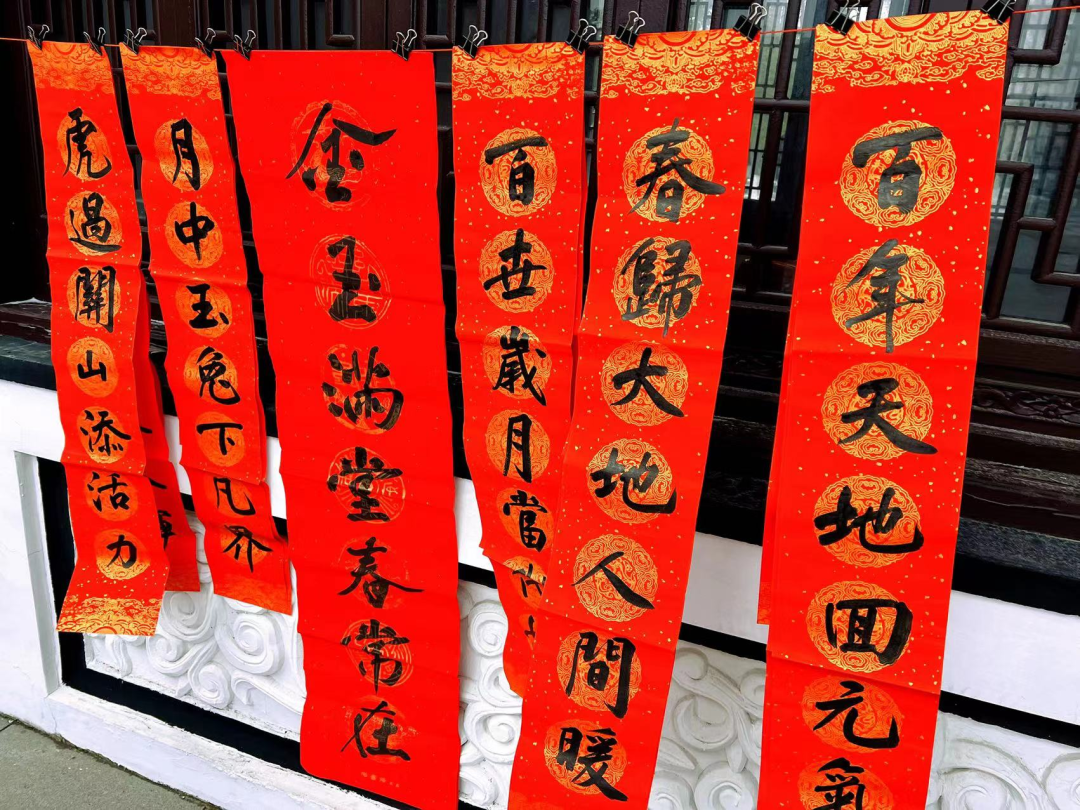 虎過關山添活力
月中玉兔下凡界
金玉滿堂春常在
百世歲月當
春歸大地人間暖
百年天地回元氣